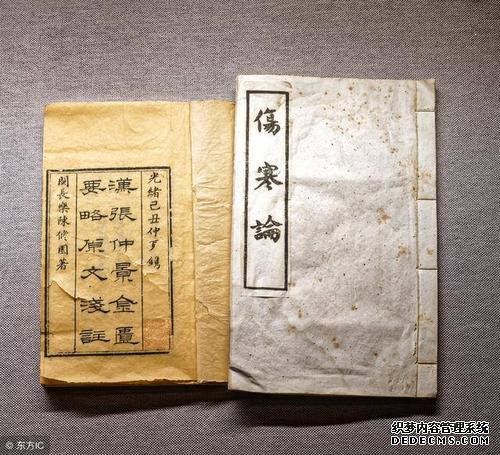 傷寒論
光緒己丑仲鐫
漢張仲景金匱
要略原文淺註
閩長樂陳修園著
© 东方IC
织梦内容管理系统
DEDECMS.COM